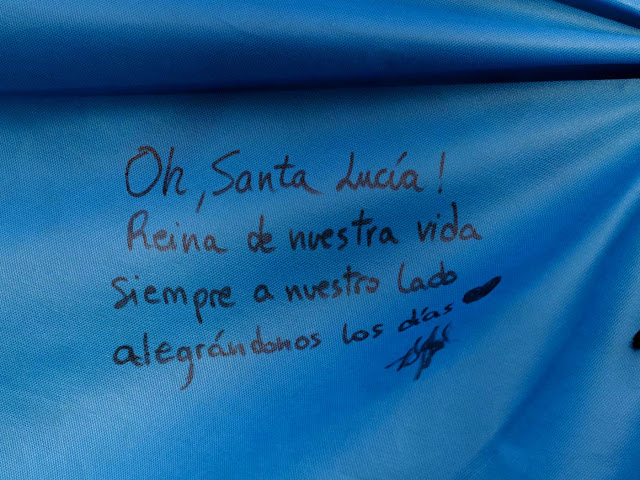 Oh, Santa Lucía!
Reina de nuestra vida
Siempre a nuestro lado
alegrándonos los días